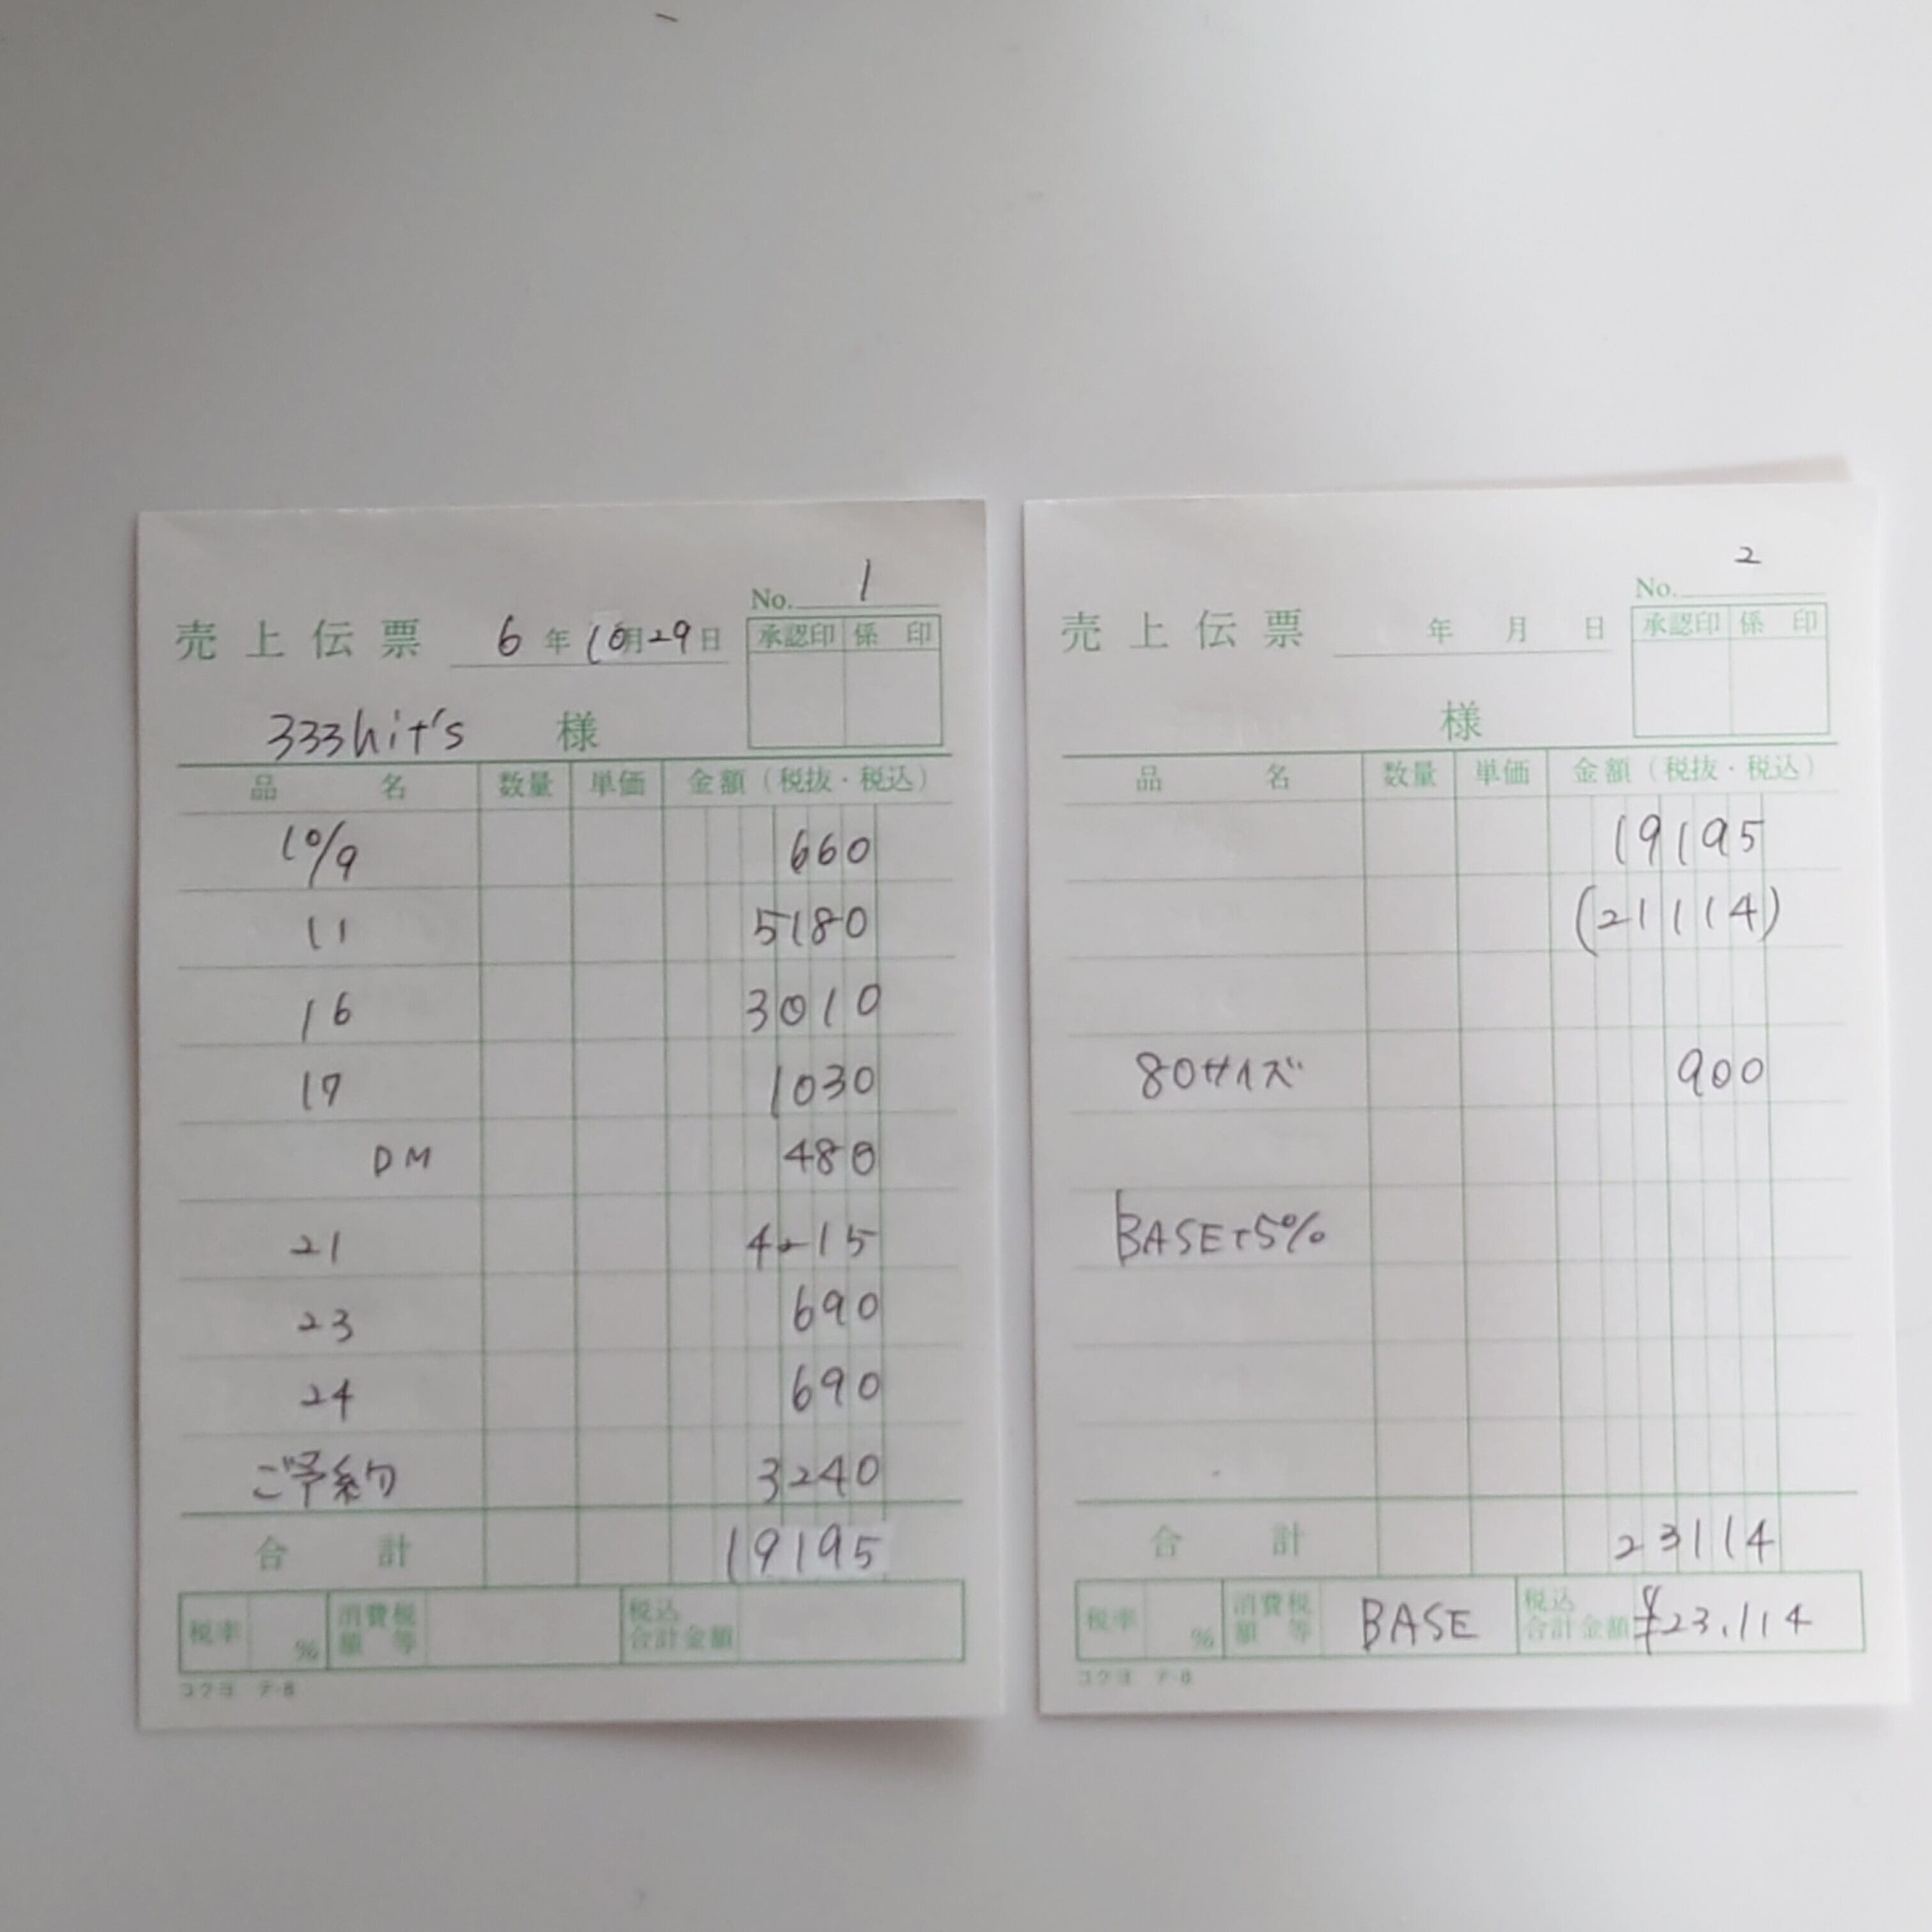 No. 1
売上伝票 6年10月29日
承認印 係印
333hit's 様
品名 数量 単価 金額(税抜・税込)
10/9 660
11 5180
16 3010
17 1030
DM 480
21 4215
23 690
24 690
ご予約 3240
合計 19195
税率 % 消費税額等 税込合計金額
コクヨ テ-8
No. 2
売上伝票 年 月 日
承認印 係印
様
品名 数量 単価 金額(税抜・税込)
19195
(21114)
80サイズ 900
BASE+5%
合計 23114
税率 % 消費税額等 BASE 税込合計金額 ¥23,114
コクヨ テ-8